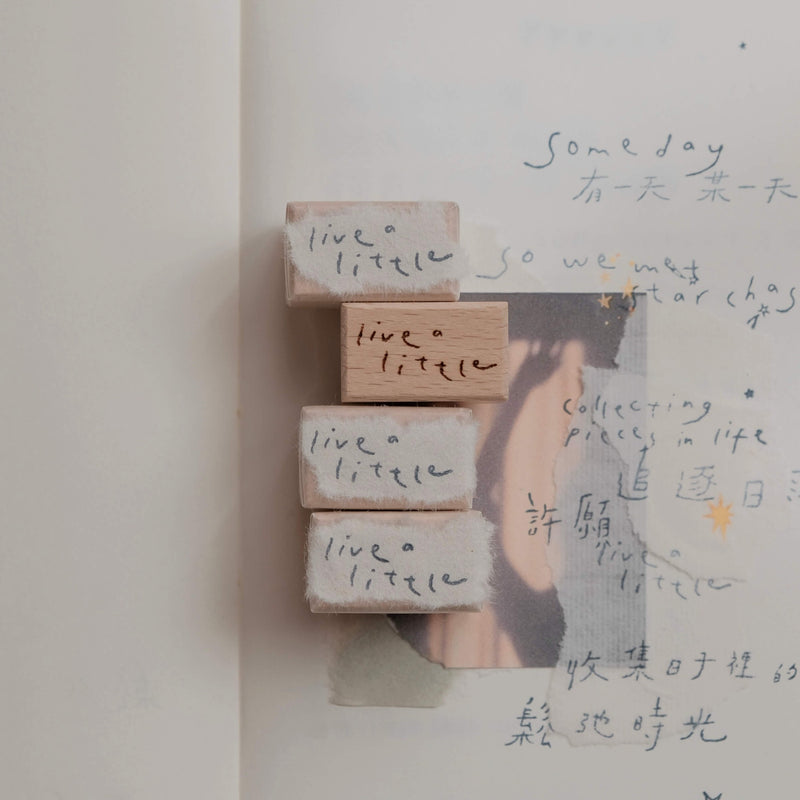 someday
有一天 某一天
so we met
star chas
live a
little
live a
little
live a
little
live a
little
collecting
pieces in life
追逐日
許願
live a
little
收集日子裡的
鬆弛時光